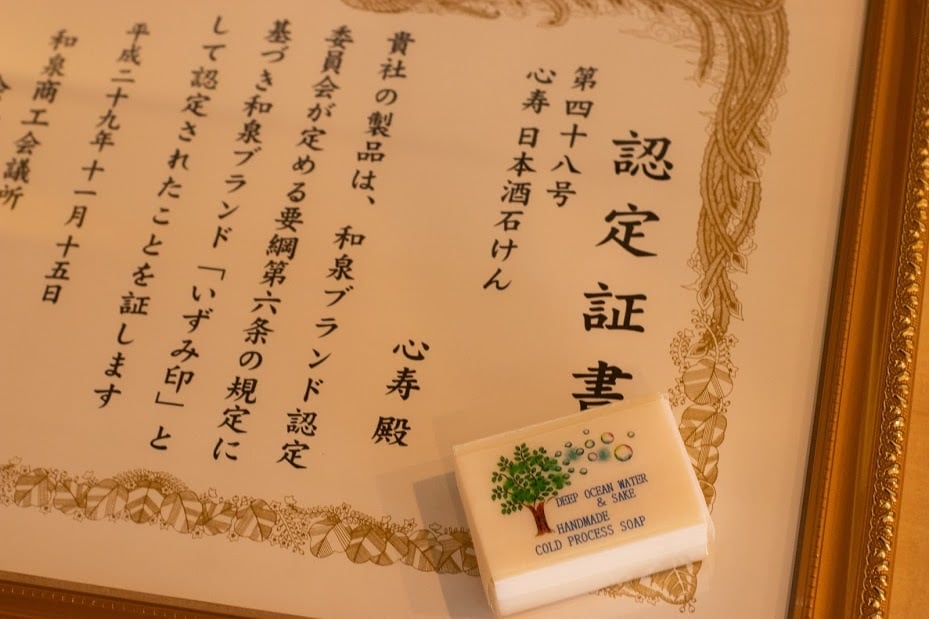 認定証書
第四十八号
心寿 日本酒石けん
心寿 殿
貴社の製品は、和泉ブランド認定
委員会が定める要綱第六条の規定に
基づき和泉ブランド「いずみ印」と
して認定されたことを証します
平成二十九年十一月十五日
和泉商工会議所
DEEP OCEAN WATER
& SAKE
HANDMADE
COLD PROCESS SOAP